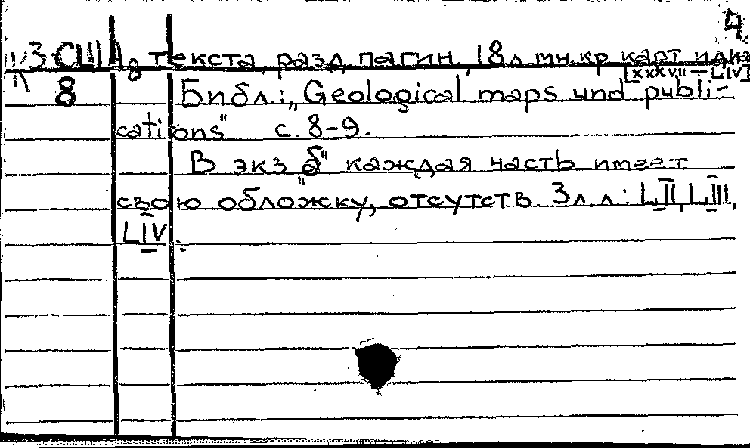 4
З США, текста, разд. пагин., 18 л. мн. кр. карт и диаг
8 [XXXVII – LIV]
8 Библ.: „Geological maps und publi-
cations" с. 8-9.
В экз. „б" каждая часть имеет
свою обложку, отсутств. 3 л.л.: LII, LIII,
LIV.